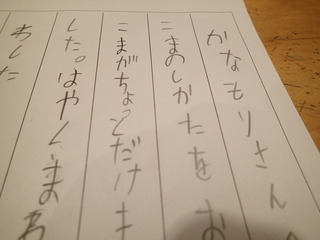 かなもりさん
こまのしかたをお
こまがちょっとだけま
した。はやくまわ
ました